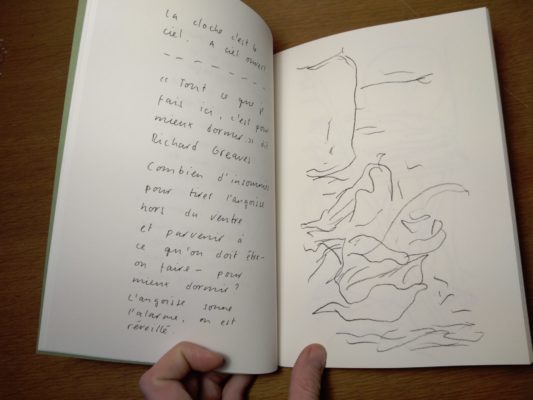 La cloche c'est le
ciel. A ciel ouvert
— — — — — — —
« Tout ce que j'
fais ici, c'est pour
mieux dormir, » dit
Richard Greaves
Combien d'insomnies
pour tirer l'angoisse
hors du ventre
et parvenir à
ce qu'on doit être -
ou faire - pour
mieux dormir?
L'angoisse sonne
l'alarme, on est
réveillé.